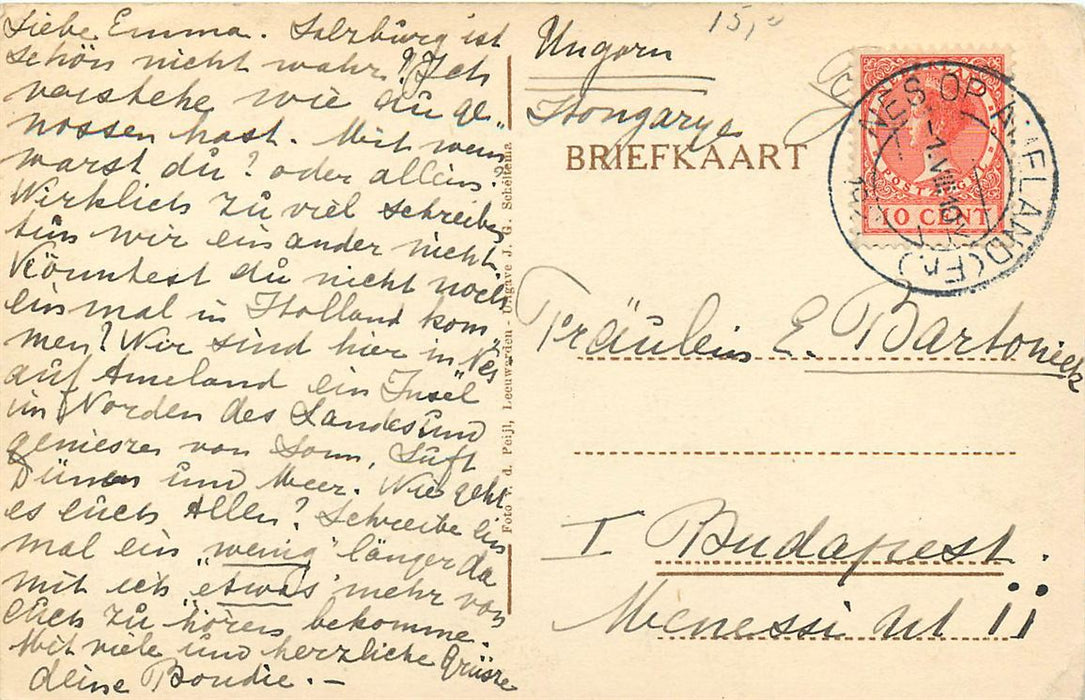 Liebe Emma. Salzburg ist
schön nicht wahr? Ich
verstehe wie du ge„
nossen hast. Mit wem
warst du? oder allein?
Wirklich zu viel schreiben
tun wir einander nicht.
Könntest du nicht noch
einmal in Holland kom„
men? Wir sind hier in Nes
auf Ameland ein Insel
im Norden des Landes und
genieszen von Sonn, Luft
Dünen und Meer. Wie geht
es euch Allen? Schreibe ein
mal ein „wenig" länger da
mit ich „etwas" mehr von
euch zu hören bekomme.
Mit viele und herzliche Grüsze
deine Boudie. —
Foto v. d. Peijl, Leeuwarden - Uitgave J. G. Scheltema
15,-
Ungarn
Hongarye
BRIEFKAART
NES OP AMELAND (Fr.)
POSTZEGEL
10 CENT
Fräulein E. Bartoniek
I Budapest.
Menessi ut 11